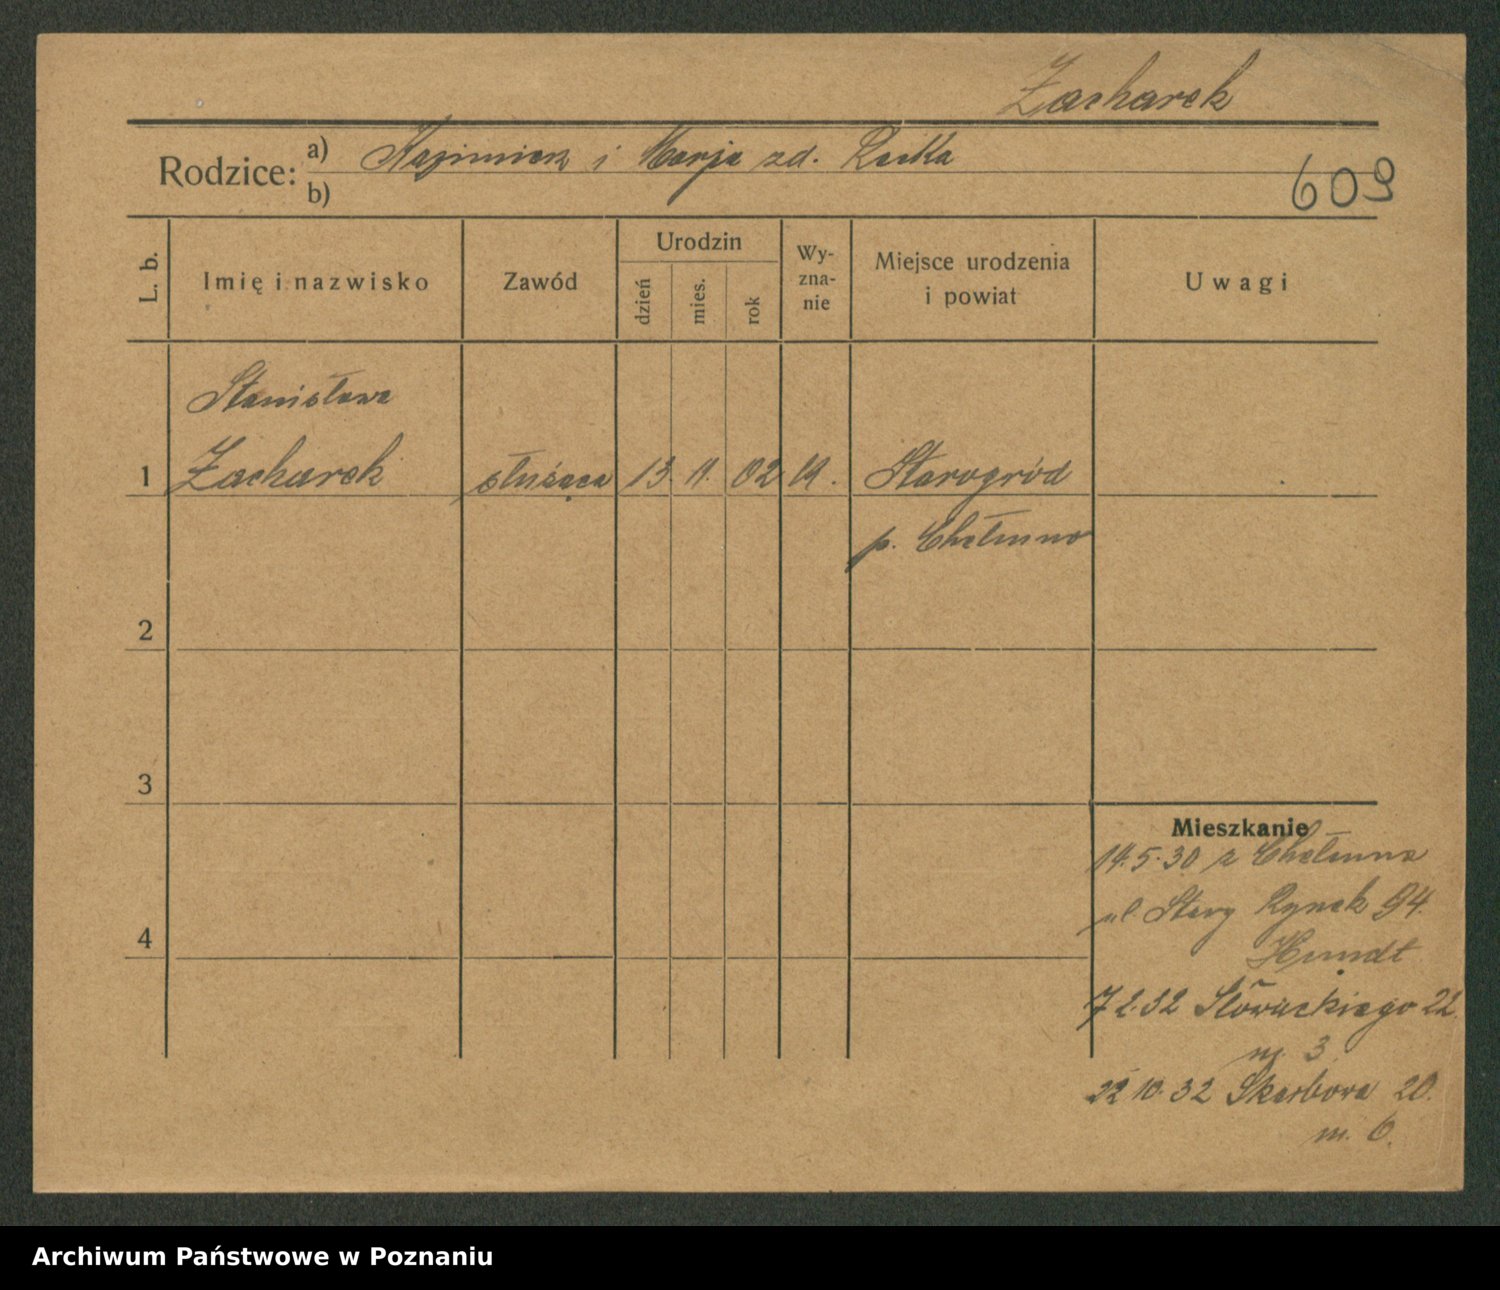 Zacharek
Rodzice: a) Kazimierz i Marja zd. Recka
b)
609
L. b.
Imię i nazwisko
Zawód
Urodzin
dzień
mies.
rok
Wy-
zna-
nie
Miejsce urodzenia
i powiat
Uwagi
Stanisława
1 Zacharek służąca 13 11. 02 Starogród
p. Chełmno
2
3
4
Mieszkanie
14.5.30 z Chełmna
ul. Stary Rynek 94.
Hundt
7 2.32 Słowackiego 22
m. 3
22 10.32 Skarbowa 20.
m. 6.
Archiwum Państwowe w Poznaniu